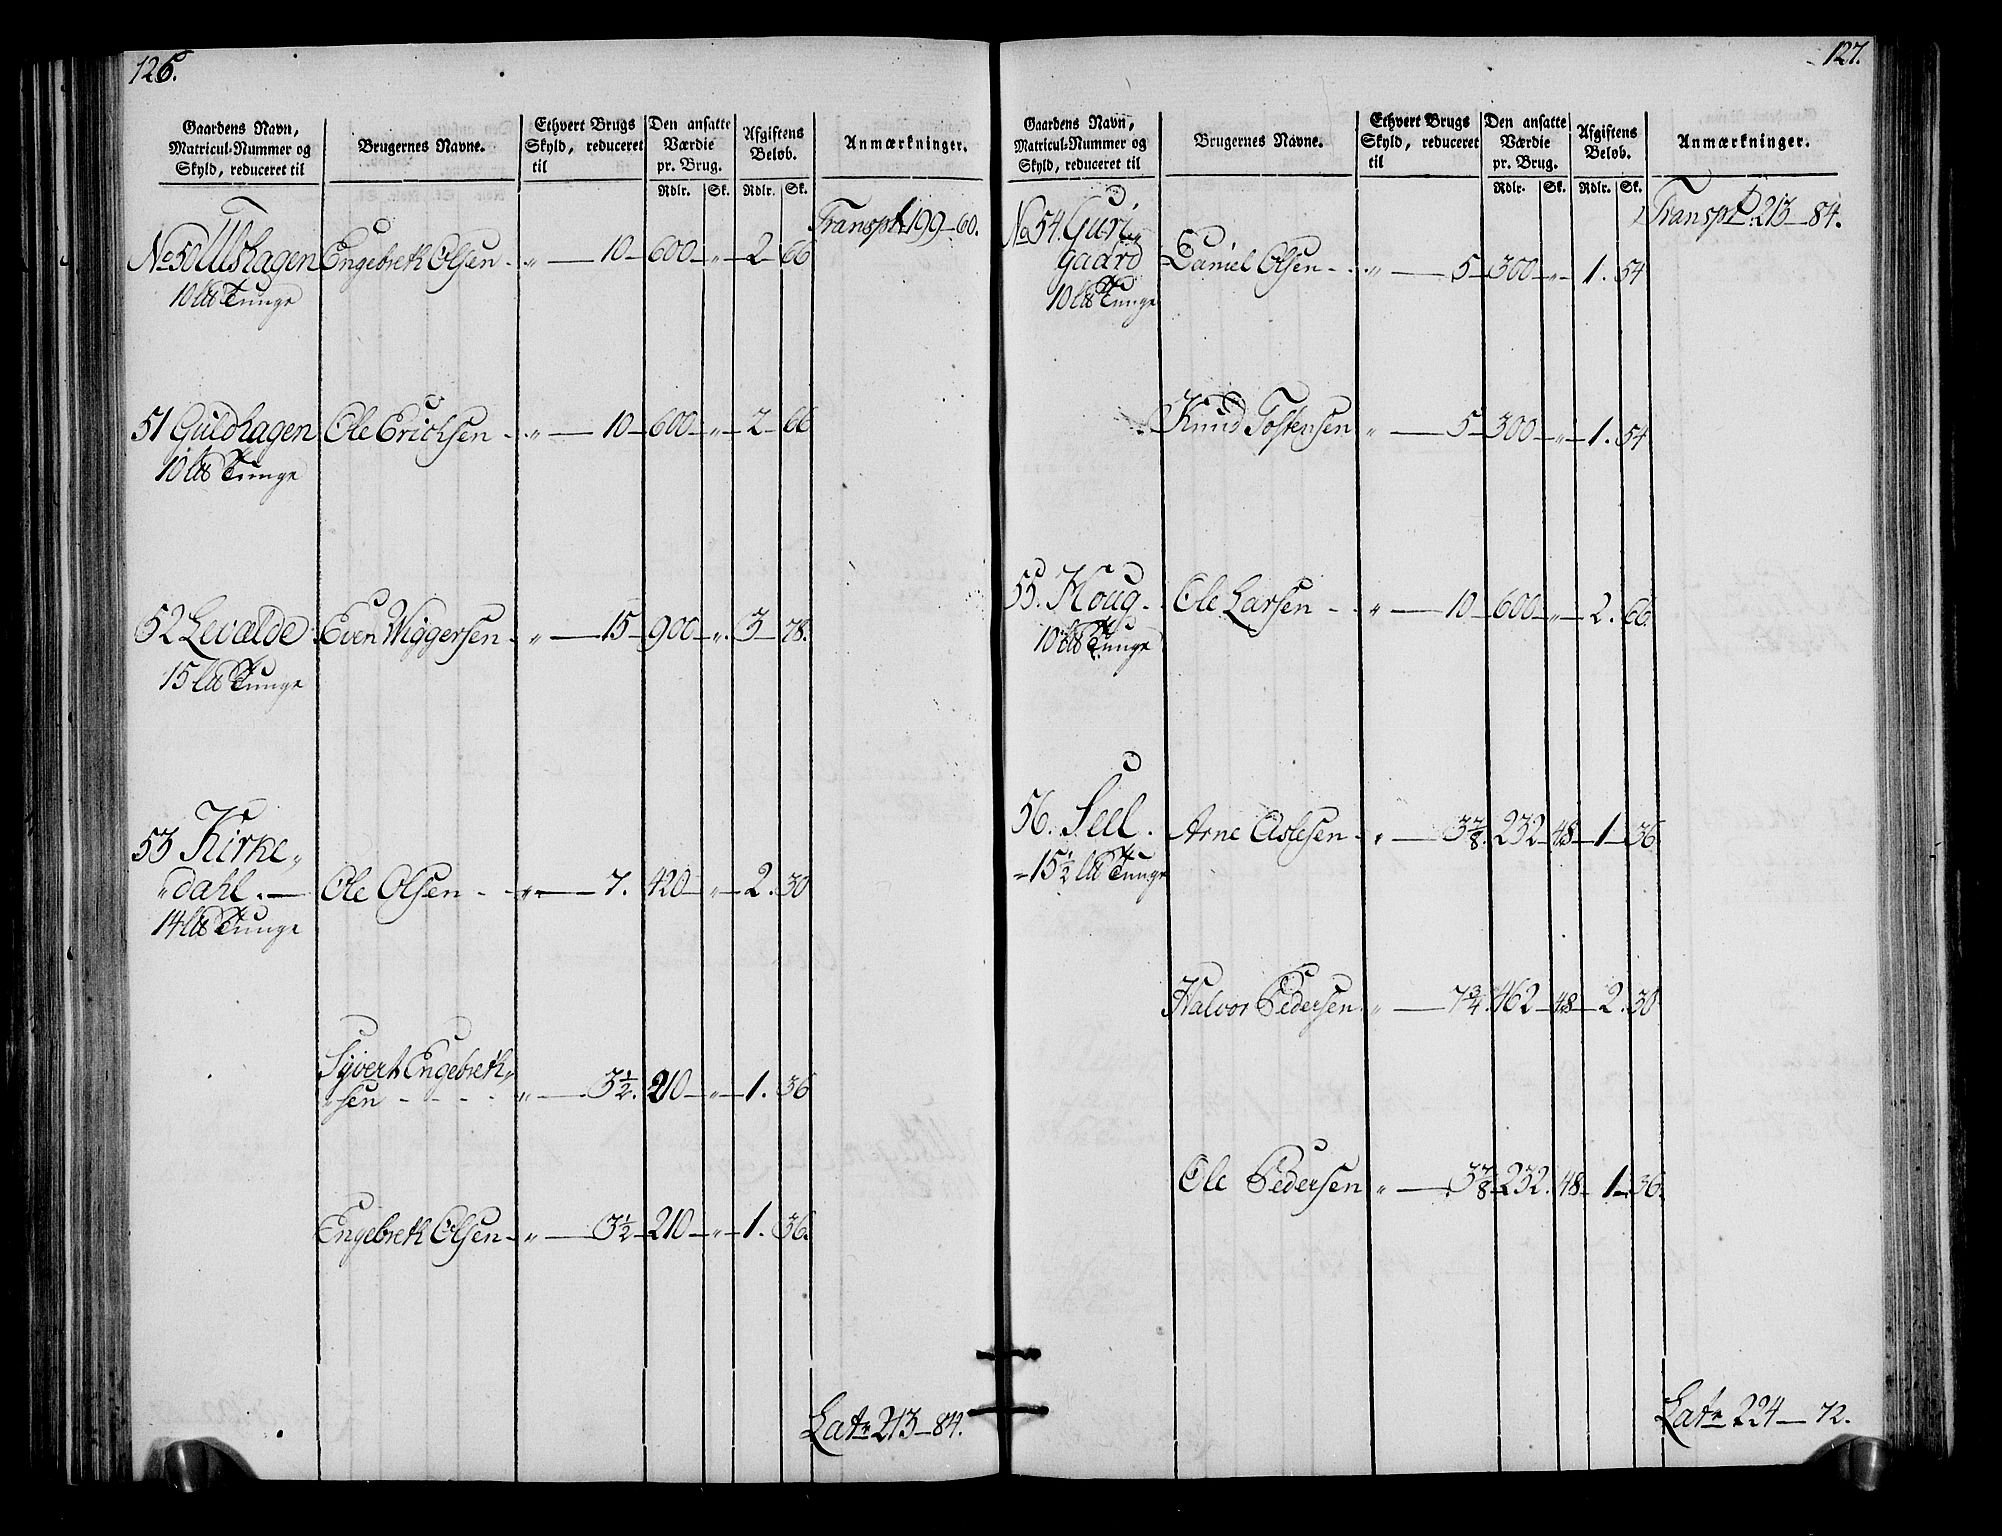 126.
Gaardens Navn, Matricul-Nummer og Skyld, reduceret til
Brugernes Navne.
Ethvert Brugs Skyld, reduceret til
Den ansatte Værdie pr. Brug.
Afgiftens Beløb.
Anmærkninger.
Rdlr. Sk. Rdlr. Sk.
Transpt. 199-60.
No 50 Ulshagen Engebreth Olsen - „ — 10 - 600 - „ - 2 - 66
10 l℔ Tunge
51 Guldhagen Ole Erichsen - „ — 10 - 600 - „ - 2 - 66
10 l℔ Tunge
52 Levælde Even Wiggersen - „ — 15 - 900 - „ - 3 - 78.
15 l℔ Tunge
53 Kirke„
„dahl. — Ole Olsen - - „ — 7. 420 - „ - 2. 30
14 l℔ Tunge
Syvert Engebreth„
„sen - - - - „ — 3½. 210 - „ - 1. 36
Engebreth Olsen - „ — 3½ - 210 - „ - 1. 36.
Lat„ 213-84.
127.
Gaardens Navn, Matricul-Nummer og Skyld, reduceret til
Brugernes Navne.
Ethvert Brugs Skyld, reduceret til
Den ansatte Værdie pr. Brug.
Afgiftens Beløb.
Anmærkninger.
Rdlr. Sk. Rdlr. Sk.
Transpt. 213-84.
No 54. Guri„
gaard Daniel Olsen - - „ — 5 - 300 - „ - 1. 54
10 l℔ Tunge
Knud Tostensen „ — 5 - 300 - „ - 1. 54
55. Houg - Ole Larsen - - „ — 10 - 600 - „ - 2. 66.
10 l℔ Tunge
56. Seel. Arne Aslesen - „ — 3⅞. 232 - 48 - 1 - 36
15½ l℔ Tunge
Halvor Pedersen. „ — 7¾. 462 - 48 - 2. 30
Ole Pedersen „ — 3⅞ - 232. 48 - 1 - 36.
Lat„ 224 - 72.